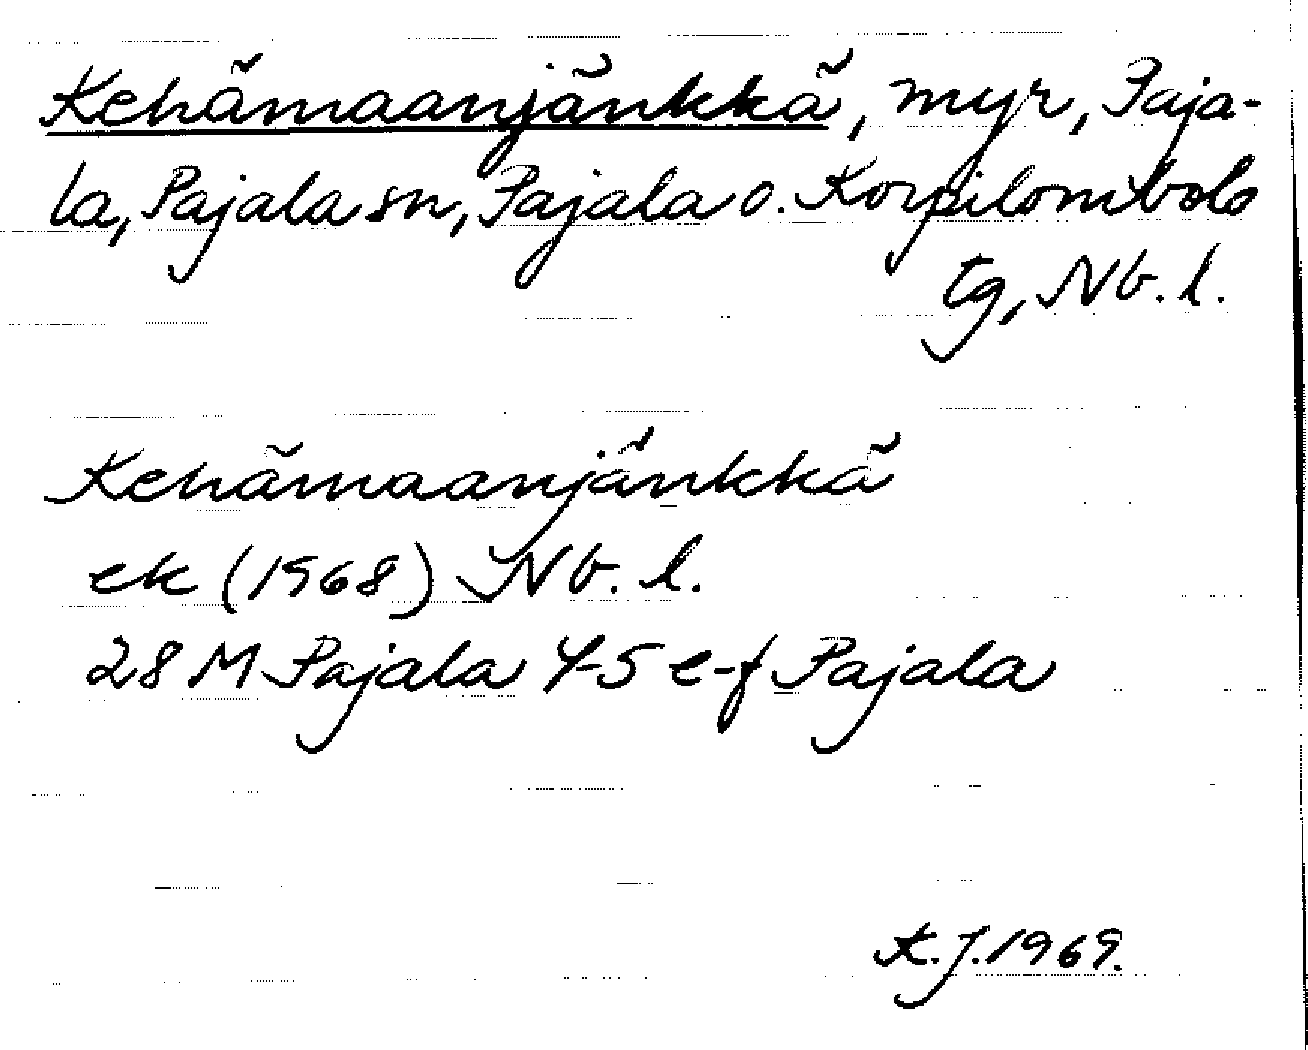 Kehämaanjänkkä, myr, Paja-
la, Pajala sn, Pajala o. Korpilombolo
tg, Nb. l.
Kehämaanjänkkä
ek (1968) Nb. l.
28 M Pajala 4-5 e-f Pajala
K.J. 1969.